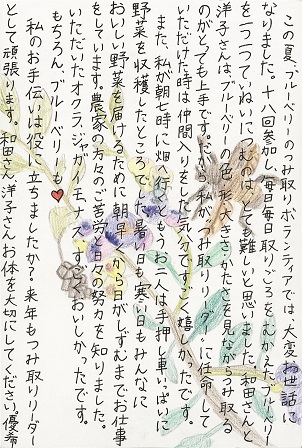 この夏、ブルーベリーのつみ取りボランティアでは、大変お世話に
なりました。十八回参加し、毎日毎日取りごろをむかえたブルーベリー
を一つ一つていねいにつむのはとても難しいと思いました。和田さんと
洋子さんは、ブルーベリーの色、形、大きさ、かたさを見ながらつみ取る
のがとても上手です。だから私が“つみ取りリーダー”に任命して
いただけた時は仲間入りをした気分ですごく嬉しかったです。
また、私が朝七時に畑へ行くともうお二人は手押し車いっぱいに
野菜を収穫したところでした。暑い日も寒い日もみんなに
おいしい野菜を届けるために朝早くから日がしずむまでお仕事
をしています。農家の方々のご苦労と日々の努力を知りました。
いただいたオクラ、ジャガイモ、ナス、すごくおいしかったです。
もちろん、ブルーベリーも♥
私のお手伝いは役に立ちましたか？来年もつみ取りリーダー
として頑張ります。和田さん、洋子さんお体を大切にしてください。優希